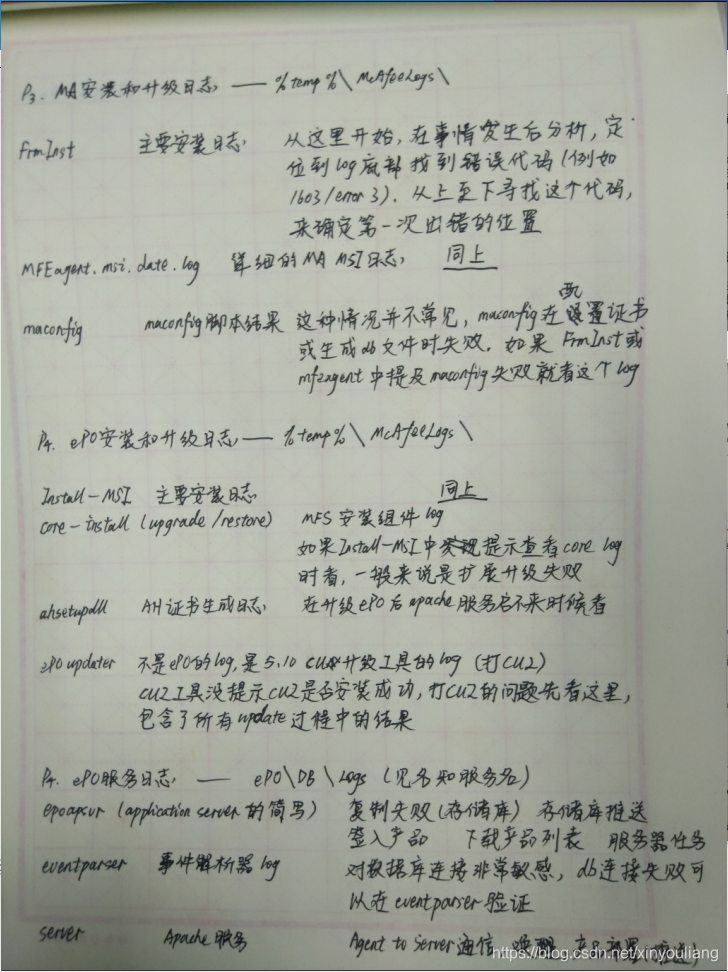 P3. MA安装和升级日志 —— %temp%\McAfeeLogs\
FrmInst 主要安装日志 从这里开始,在事情发生后分析,定
位到log底部找到错误代码(例如
1603/error 3). 从上至下寻找这个代码,
来确定第一次出错的位置
MFEagent.msi.date.log 详细的MA MSI日志, 同上
配
maconfig maconfig脚本结果 这种情况并不常见, maconfig在置证书
或生成db文件时失败. 如果 FrmInst或
mfeagent中提及maconfig失败就看这个log
P4. ePO安装和升级日志 —— %temp%\McAfeeLogs\
Install-MSI 主要安装日志 同上
core-install (upgrade/restore) MFS 安装组件log
如果Install-MSI中提示查看core log
时看, 一般来说是扩展升级失败
ahsetupdll AH证书生成日志, 在升级ePO后apache服务启不来时候看
ePO updater 不是ePO的log,是5.10 CU升级工具的log (打CU2)
CU2工具没提示CU2是否安装成功,打CU2的问题先看这里,
包含了所有update过程中的结果
P4. ePO服务日志, —— ePO\DB\Logs (见名知服务名)
epoapsvr (application server的简写) 复制失败(存储库) 存储库推送
签入产品 下载产品列表 服务器任务
eventparser 事件解析器log 对数据库连接非常敏感, db连接失败可
以在eventparser验证
server Apache服务 Agent to Server通信 唤醒
https://blog.csdn.net/xinyouliang